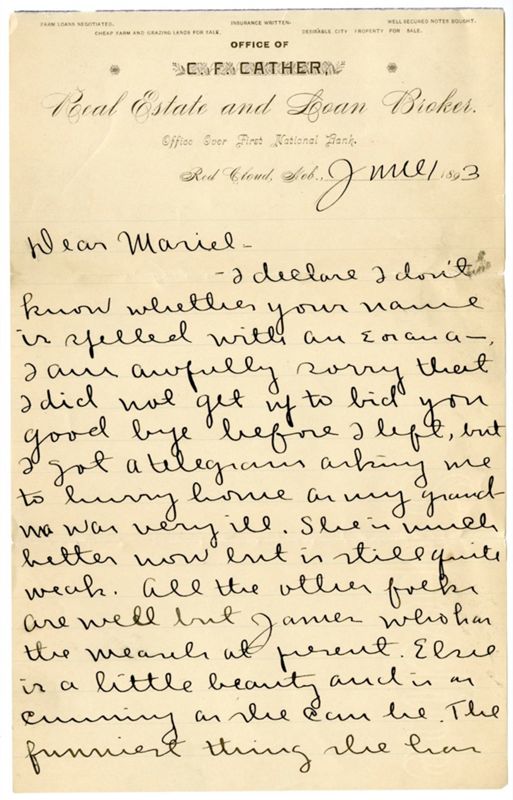 FARM LOANS NEGOTIATED. INSURANCE WRITTEN. WELL SECURED NOTES BOUGHT.
CHEAP FARM AND GRAZING LANDS FOR SALE. DESIRABLE CITY PROPERTY FOR SALE.
OFFICE OF
C. F. CATHER,
Real Estate and Loan Broker.
Office Over First National Bank.
Red Cloud, Neb., June 1 1893
Dear Mariel–
–I declare I don't
know whether your name
is spelled with an E or an a–,
I am awfully sorry that
I did not get up to bid you
good bye before I left, but
I got a telegram asking me
to hurry home as my grand-
ma was very ill. She is much
better now but is still quite
weak. All the other folks
are well but James who has
the measels at present. Elsie
is a little beauty and is as
cunning as she can be. The
funniest thing she has